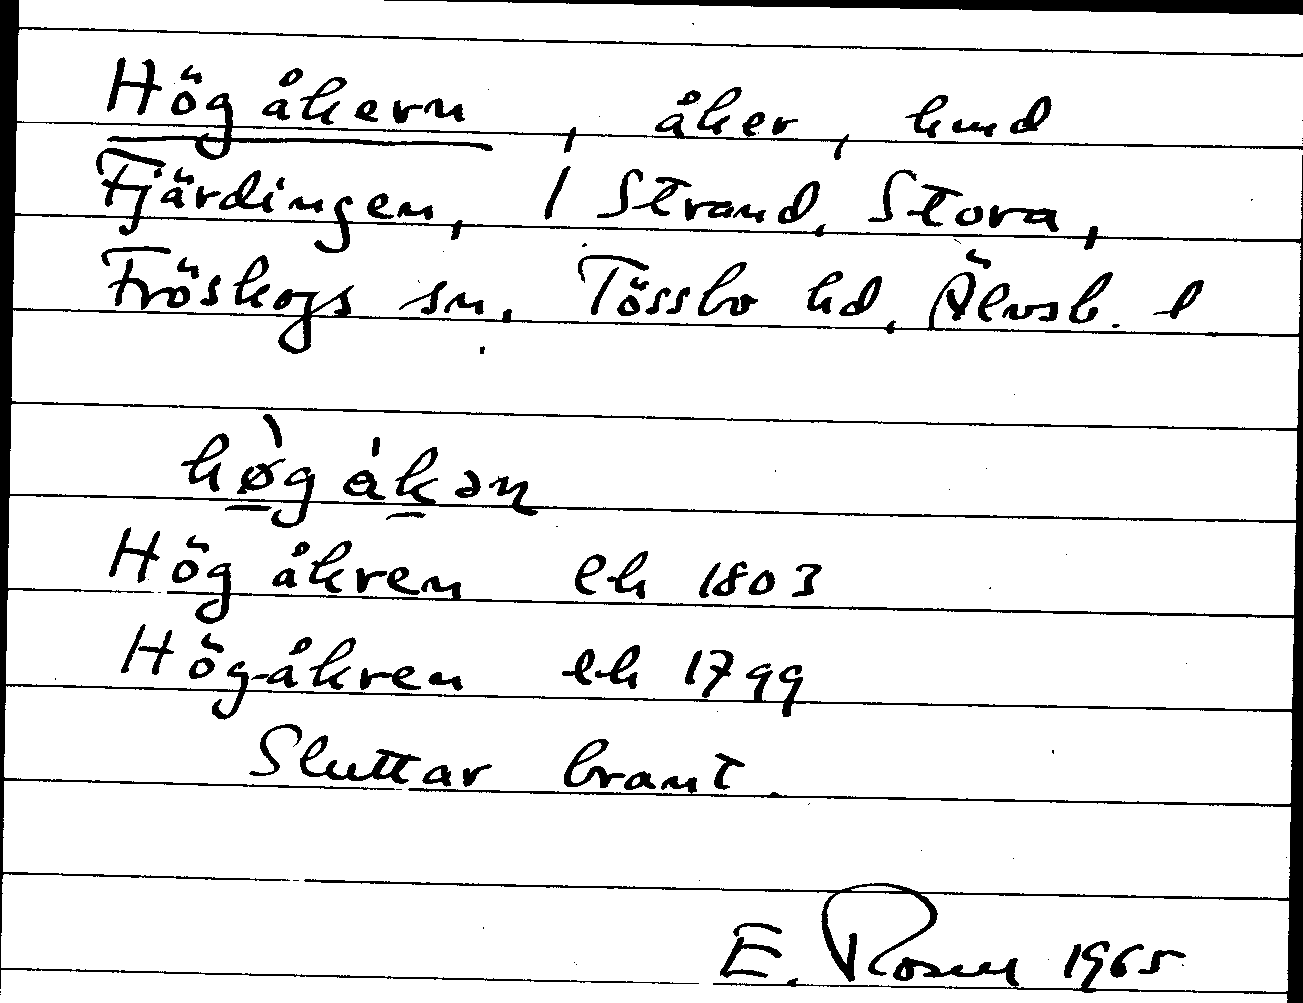 Högåkern, åker, hmd
Fjärdingen, 1 Strand, Stora,
Fröskogs sn. Tössbo hd. Älvsb. l
hø̀gåkəɳ
Högåkren lh 1803
Hög-åkren lh 1799
Sluttar brant.
E. Rosen 1965